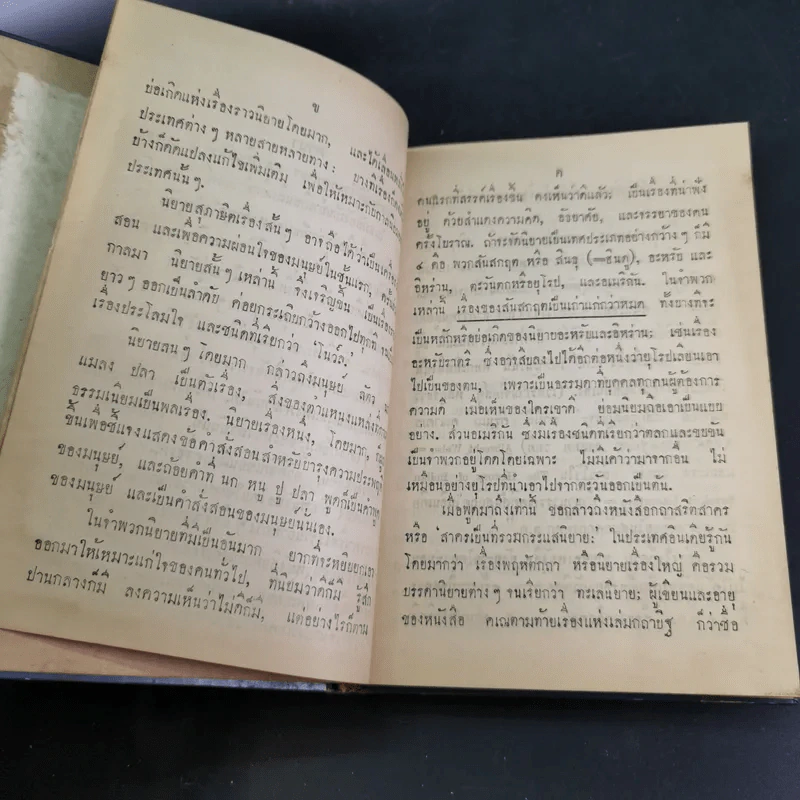 ข
ย่อเกิดแห่งเรื่องราวนิยายโดยมาก, และได้เลื่อน
ประเทศต่างๆ หลายสายหลายทาง: บางทีเรื่อง
บ้างก็ดัดแปลงแก้ไขเพิ่มเติม เพื่อให้เหมาะกับกาล
ประเทศนั้นๆ.
นิยายสุภาษิตเรื่องสั้นๆ อาจถือได้ว่าเป็นเครื่อง
สอน และเพื่อความผ่อนใจของมนุษย์ในชั้นแรก, ครั้น
กาลมา นิยายสั้นๆ เหล่านี้ จึ่งเจริญขึ้น เป็นเรื่อง
ยาวๆ ออกเป็นลำดับ ค่อยกระเถิบกว้างออกไปทุกที
เรื่องประโลมใจ และชนิดที่เรียกว่า 'โนว์ล.'
นิยายลนๆ โดยมาก กล่าวถึงมนุษย์ สัตว์
แมลง ปลา เป็นตัวเรื่อง, สิ่งของตำแหน่งแหล่งที่
ธรรมเนียมเป็นพลเรื่อง. นิยายเรื่องหนึ่ง, โดยมาก,
ขึ้นเพื่อชี้แจงแสดงข้อคำสั่งสอนสำหรับบำรุงความประพฤติ
ของมนุษย์, และถ้อยคำที่ นก หนู ปู ปลา พูดก็เป็นคำพูด
ของมนุษย์ และเป็นคำสั่งสอนของมนุษย์นั้นเอง.
ในจำพวกนิยายที่มีเป็นอันมาก ยากที่จะหยิบยกเอา
ออกมาให้เหมาะแก่ใจของคนทั่วไป, ที่นิยมว่าดีก็มี รู้สึก
ปานกลางก็มี ลงความเห็นว่าไม่ดีก็มี, แต่อย่างไรก็ตาม
ค
คนนักที่สรรค์เรื่องขึ้น คงเห็นว่าดีแล้ว: เป็นเรื่องที่น่าฟัง
อยู่ ด้วยสำแดงความคิด, อัธยาศัย, และจรรยาของคน
ครั้งโบราณ. ถ้าจะจัดนิยายเป็นเทศประเภทอย่างกว้างๆ ก็มี
๔ คือ พวกสันสกฤต หรือ สินธุ (=ฮินดู), อะหรับ และ
อิหร่าน, ตะวันตกหรือยุโรป, และอเมริกัน. ในจำพวก
เหล่านี้ เรื่องของสันสกฤตเป็นเก่าแก่กว่าหมด ทั้งบางทีจะ
เป็นหลักหรือย่อเกิดของนิยายอะหรับและอิหร่าน; เช่นเรื่อง
อะหรับราตรี ซึ่งอาจสืบลงไปได้อีกต่อหนึ่งว่ายุโรปเลียนเอา
ไปเป็นของตน, เพราะเป็นธรรมดาที่บุคคลทุกคนผู้ต้องการ
ความดี เมื่อเห็นของใครเขาดี ย่อมนิยมถือเอาเป็นแบบ
อย่าง. ส่วนอเมริกัน ซึ่งมีเรื่องชนิดที่เรียกว่าตลกและขบขัน
เป็นจำพวกอยู่โดดโดยเฉพาะ ไม่มีเค้าว่ามาจากอื่น ไม่
เหมือนอย่างยุโรปที่นำเอาไปจากตะวันออกเป็นต้น.
เมื่อพูดมาถึงเท่านี้ ขอกล่าวถึงหนังสือกถาสริตสาคร
หรือ 'สาครเป็นที่รวมกระแสนิยาย:' ในประเทศอินเดียรู้กัน
โดยมากว่า เรื่องพฤหัตกถา หรือนิยายเรื่องใหญ่ คือรวม
บรรดานิยายต่างๆ จนเรียกว่า ทะเลนิยาย; ผู้เขียนและอายุ
ของหนังสือ คเณตามท้ายเรื่องแห่งเล่มกถาปีฐ ก็ว่าชื่อ